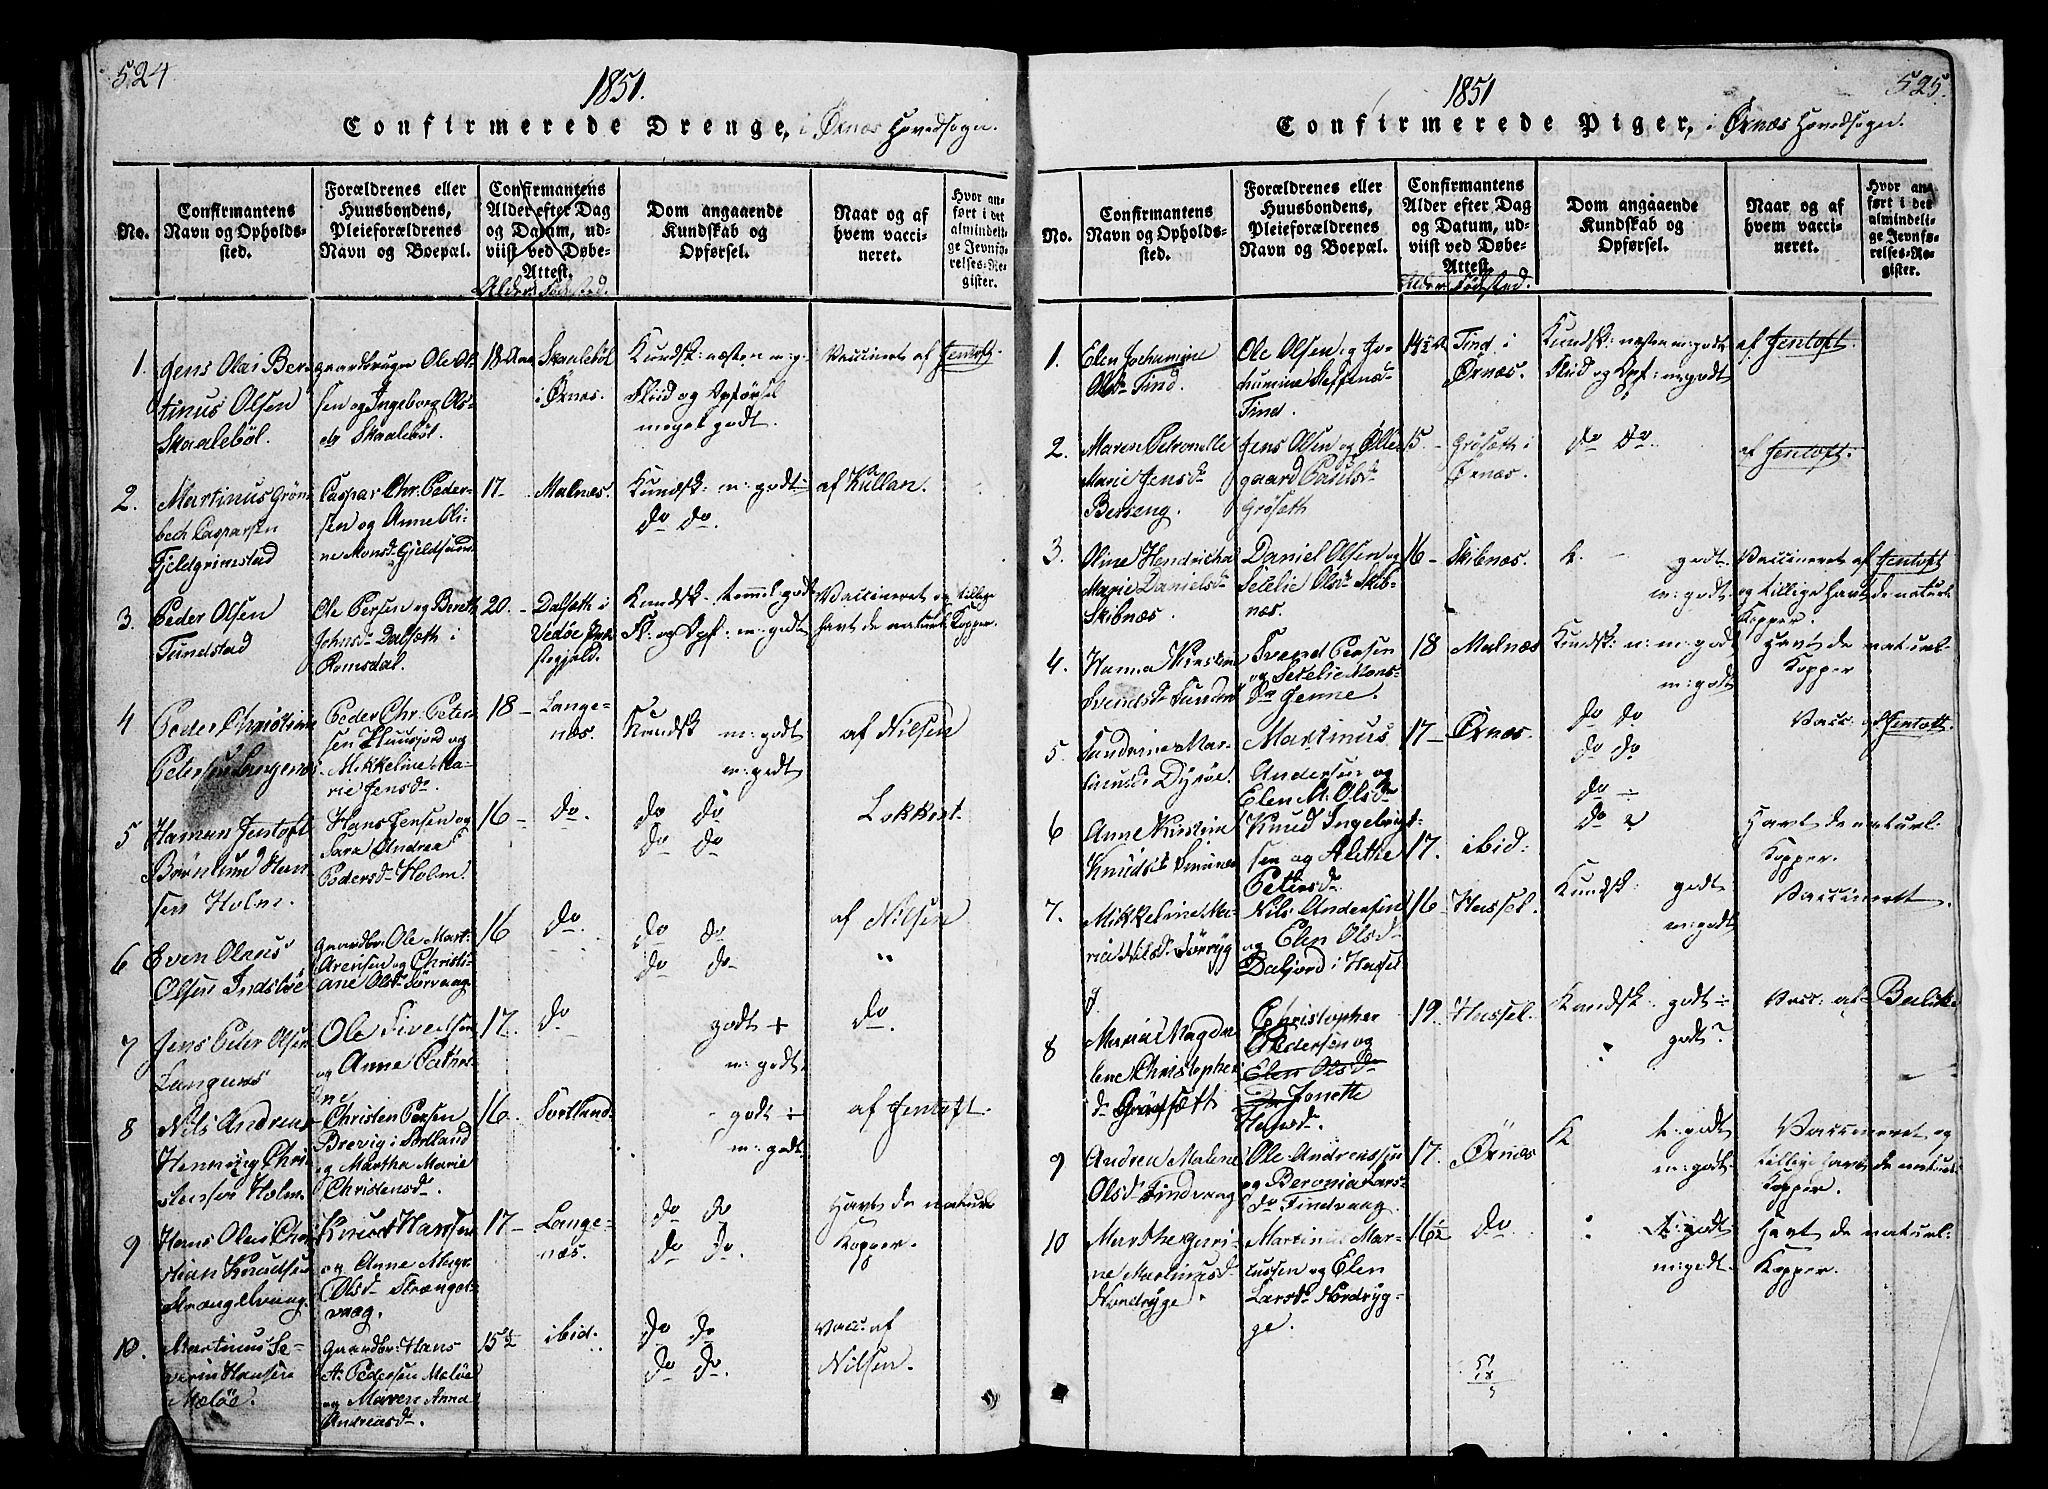 524
1851.
Confirmerede Drenge, i Örnæs Hovedsogn.
No.
Confirmantens Navn og Opholdssted.
Forældrenes eller Huusbondens, Pleieforældrenes Navn og Boepæl.
Confirmantens Alder efter Dag og Datum, udviist ved Døbe-Attest.
Alder Fødested.
Dom angaaende Kundskab og Opførsel.
Naar og af hvem vaccineret.
Hvor anført i det almindelige Jevnførelses-Register.
1.
Jens Olai Ber
tinus Olsen
Skaaleböl.
gaardbruger Ole Ol-
sen og Ingeborg Ols-
dr Skaaleböl.
18 Aar
Skaaleböl
i Örnæs.
Kundsk: næsten m: g.
Flid og Opførsel
meget godt.
Vaccineret af Jentoft.
2.
Martinus Grön
bech Casparsen
Fjeldgrimstad
Caspar Chr. Peder-
sen og Anne Eli-
ne Monsdr
17 -
Malnæs.
Kundsk: m: godt
do do
af Kullan.
3.
Peder Olsen
Tundstad
Ole Persen og Bereth
Johnsdr Dalsæth i
Romsdal.
20. -
Dalsæth i
Vedöe Præ
stegjeld.
Kundsk. temmel: godt
Fl: og Opf: m: godt
Vaccineret og tillige
havt de naturl. Kopper.
4
Peder Christian
Petersen Langenæs
Peder Chr. Peter-
sen Huusjord og
Mikkeline Ma-
rie Jensdr.
18 -
Lange-
næs.
Kundsk m: godt
m: godt
af Nilsen
5
Haman Jentoft
Börnlund Han
sen Holm.
Hans Jensen og
Sara Andrea
Pedersdr Holm.
16 -
do.
do do
do do
Lokkert.
6
Even Olaus
Olsen Indsløe
gaardbr. Ole Mart.
Arentsen og Christi-
ane Olsdr Sørvaag
16
do.
do do
do do
af Nilsen
"
7
Jens Peter Olsen
Langenæs
Ole Sivertsen
og Anne Cathri-
ne
17.
do
godt +
m: godt
do.
8
Nils Andreas
Henning Chri
stensen Holm
Christen Persen
Brevig i Sortland
og Martha Marie
Christensdr.
16.
Sortland
godt ÷
m: godt
af Jentoft.
9
Hans Olai Chri
stian Knudsen
Strængelvaag.
Knud Hansen
og Anne Magr.
Olsdr Strængel-
vaag.
17 -
Lange-
næs.
do do
do do.
Havt de naturl
Kopper.
10.
Martinus Se-
verin Hansen
Mæløe.
Gaardbr: Hans
A. Pedersen Mæløe
og Maren Anna
Andreasdr.
15½
ibid.
do do
do do.
Vacc: af
Nilsen.
525.
1851
Confirmerede Piger, i Örnæs Hovedsogn.
No.
Confirmantens Navn og Opholdssted.
Forældrenes eller Huusbondens, Pleieforældrenes Navn og Boepæl.
Confirmantens Alder efter Dag og Datum, udviist ved Døbe-Attest.
Alder Fødested.
Dom angaaende Kundskab og Opførsel.
Naar og af hvem vaccineret.
Hvor anført i det almindelige Jevnførelses-Register.
1.
Elen Jochumine
Olsdr Tind.
Ole Olsen og Jo-
chumine Steffensdr
Tind.
14½
Tind i
Örnæs.
Kundsk: næsten m: godt
Flid og Opf: m: godt
af Jentoft.
2.
Maren Petronelle
Marie Jensdr
Berseng.
Jens Olsen og Olle-
gaard Paulsdr
Grösæth
15 -
Grösæth i
Örnæs.
do do.
af Jentoft.
3.
Oline Hendricha
Marie Danielsdr
Skibnæs.
Daniel Olsen og
Setelie Olsdr Skib-
næs.
16 -
Skibnæs.
godt.
m: godt.
Vaccineret af Jentoft
og tillige havt de naturl
Kopper.
4.
Hanna Kirstine
Svendsdr
Svend Persen
og Setelie Mons-
dr Jenne.
18
Malnæs
Kundsk: n: m: godt
m: godt
Havt de naturl-
Kopper
5.
Sandrine Mar-
tinusdr Dyröe.
Martinus
Andersen og
Elen M: Olsdr
17 -
Örnæs.
do do
do do
Vacc. af Jentoft.
6
Anne Kirstine
Knudsdr
Knud Ingebrigt-
sen og Alethe
Petersdr
17.
ibid:
do ÷
do
Havt de naturl:
Kopper.
7.
Mikkeline Ma-
ria Nilsdr Sörryg
Nils Andersen
og Elen Olsdr
Dalsjord i Hassel
16 -
Hassel.
Kundsk: godt
m: godt
Vaccineret.
8
Maria Magda-
lene Christopher
dr Grøsætt
Christopher
Andersen og
Elen Olsdr
Jonette
Hansdr.
19.
Hassel.
Kundsk: godt ÷
godt?
Vacc: af Balck
9
Andrea Malene
Olsdr Tindvaag
Ole Andreassen
og Beronia Lars-
dr Tindvaag
17.
Örnæs
K t: godt
m: godt
Vaccineret og
tillige havt de naturl
Kopper.
10
Marthe Guri-
ne Martinusdr
Nordryge.
Martinus Mar-
tussen og Elen
Larsdr Nordryg-
ge.
16½
do
t: godt
m: godt.
Havt de naturl:
Kopper.